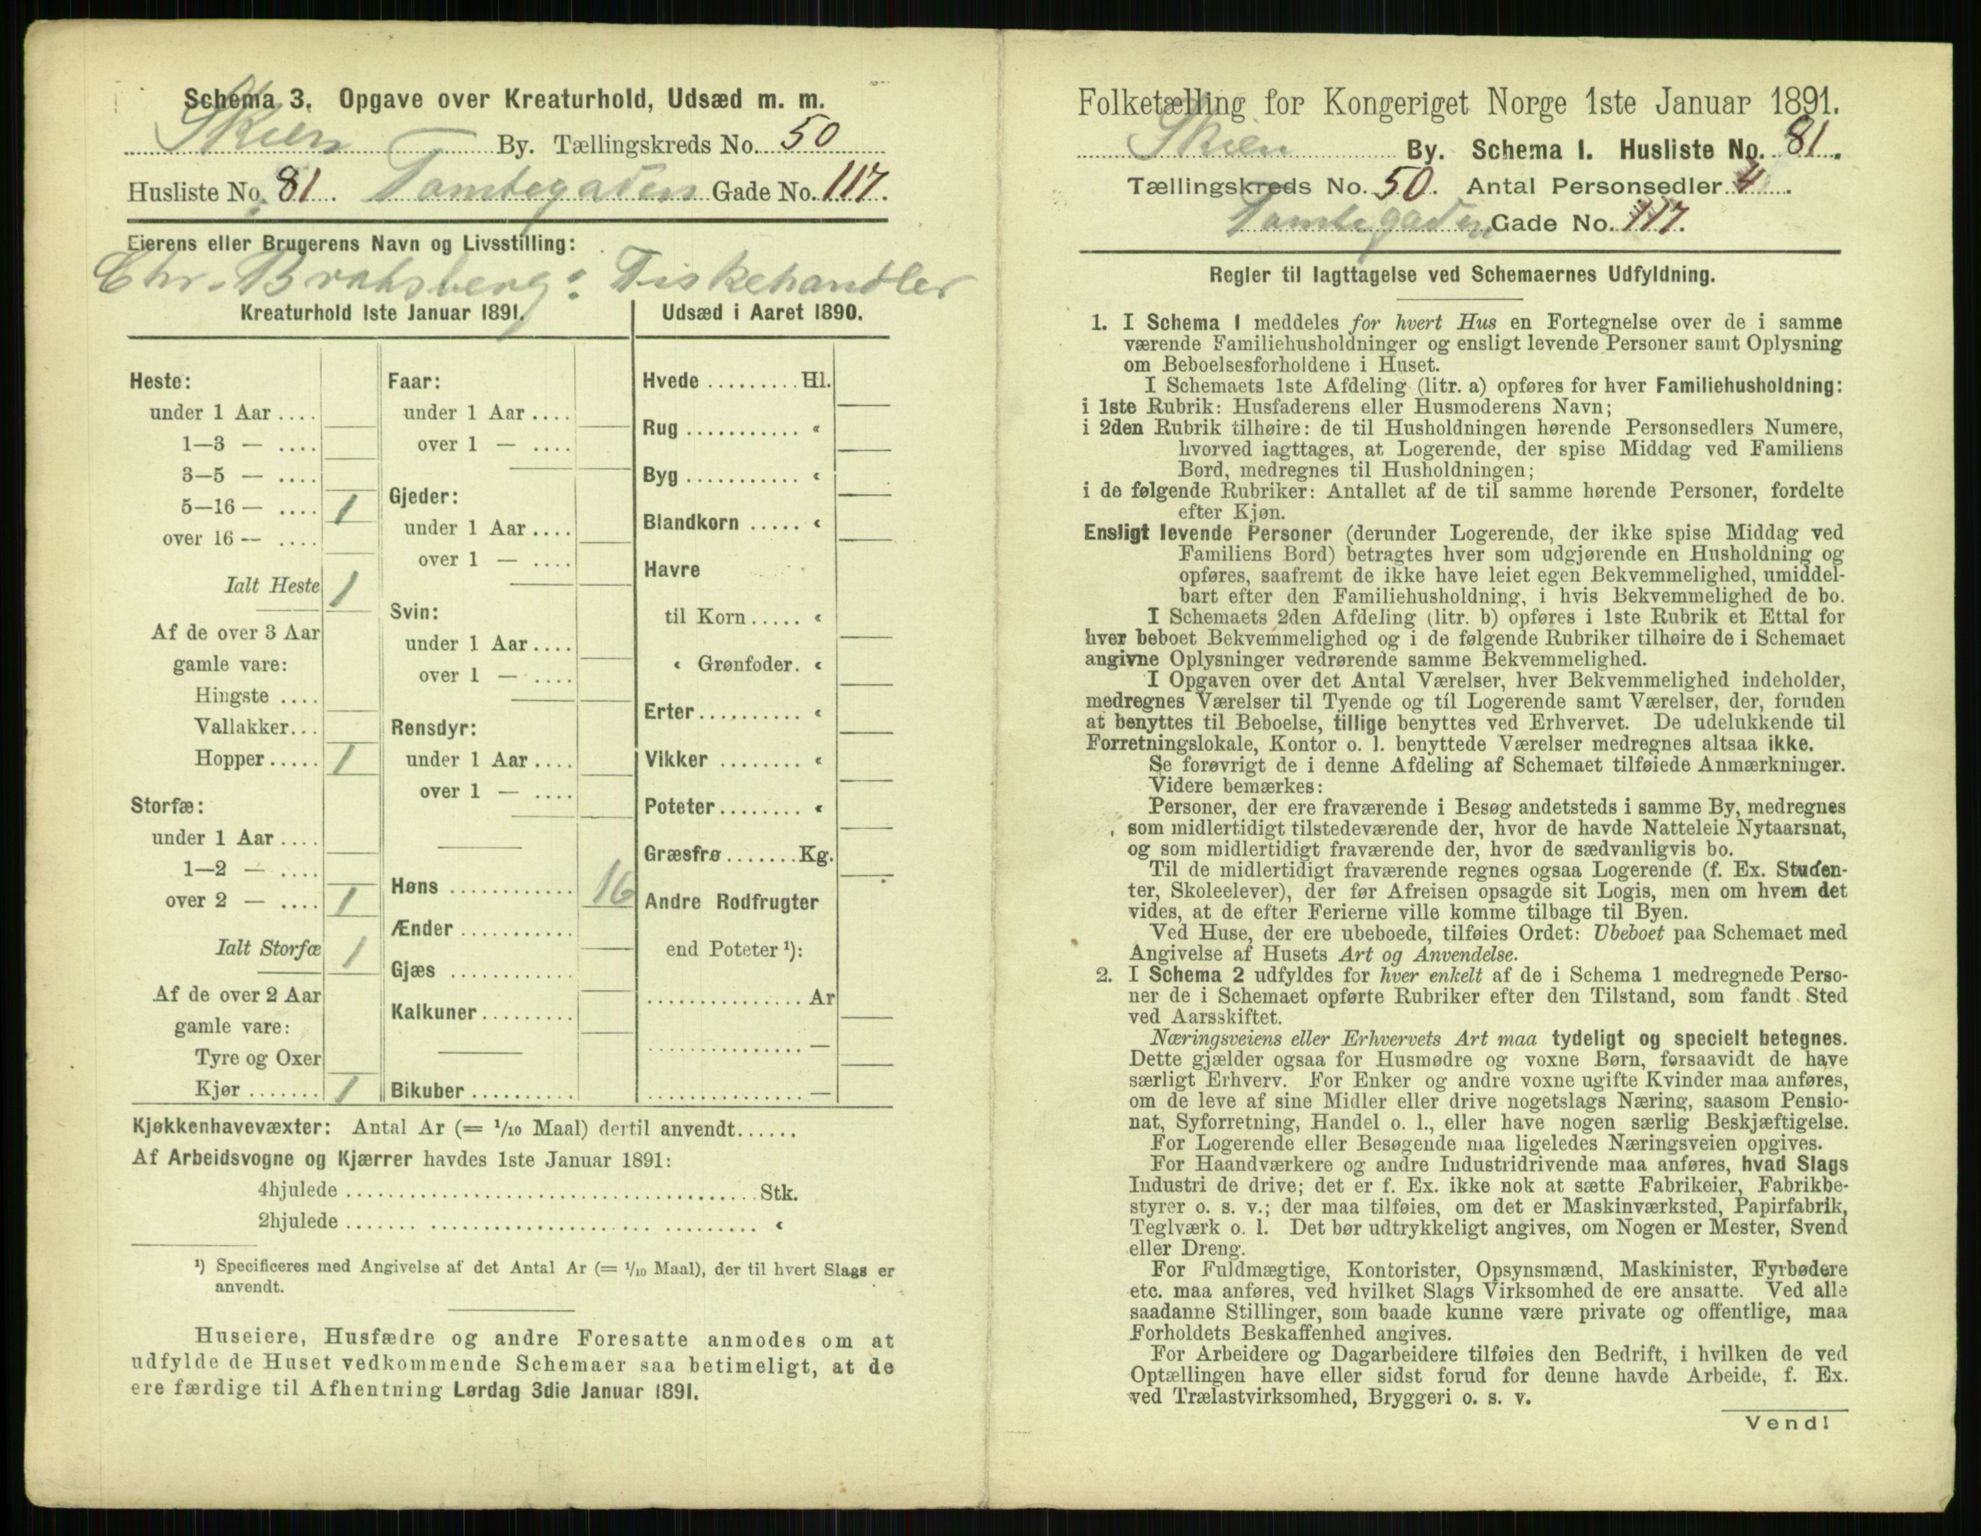 Schema 3. Opgave over Kreaturhold, Udsæd m. m.
Skien By. Tællingskreds No. 50
Husliste No. 81. Tomtegaden Gade No. 117.
Eierens eller Brugerens Navn og Livsstilling:
Chr. Bratsberg: Fiskehandler
Kreaturhold 1ste Januar 1891.
Heste:
under 1 Aar ....
1—3 — ....
3—5 — ....
5—16 — .... 1
over 16 — ....
Ialt Heste 1
Af de over 3 Aar
gamle vare:
Hingste ....
Vallakker...
Hopper ..... 1
Storfæ:
under 1 Aar ....
1—2 — ....
over 2 — .... 1
Ialt Storfæ 1
Af de over 2 Aar
gamle vare:
Tyre og Oxer
Kjør ....... 1
Faar:
under 1 Aar ....
over 1 — ....
Gjeder:
under 1 Aar ....
over 1 — ....
Svin:
under 1 Aar ....
over 1 — ....
Rensdyr:
under 1 Aar ....
over 1 — ....
Høns ........... 16
Ænder ...........
Gjæs ...........
Kalkuner .........
Bikuber ..........
Udsæd i Aaret 1890.
Hvede ......... Hl.
Rug ........... «
Byg ........... «
Blandkorn ..... «
Havre
til Korn ..... «
« Grønfoder. «
Erter .......... «
Vikker ......... «
Poteter ........ «
Græsfrø ....... Kg.
Andre Rodfrugter
end Poteter ¹):
............... Ar
............... —
............... —
Kjøkkenhavevæxter: Antal Ar (= 1/10 Maal) dertil anvendt ......
Af Arbeidsvogne og Kjærrer havdes 1ste Januar 1891:
4hjulede ..................................... Stk.
2hjulede ..................................... «
¹) Specificeres med Angivelse af det Antal Ar (= 1/10 Maal), der til hvert Slags er
anvendt.
Huseiere, Husfædre og andre Foresatte anmodes om at
udfylde de Huset vedkommende Schemaer saa betimeligt, at de
ere færdige til Afhentning Lørdag 3die Januar 1891.
Folketælling for Kongeriget Norge 1ste Januar 1891.
Skien By. Schema 1. Husliste No. 81.
Tællingskreds No. 50. Antal Personsedler 4.
Tomtegaden Gade No. 117.
Regler til Iagttagelse ved Schemaernes Udfyldning.
1. I Schema 1 meddeles for hvert Hus en Fortegnelse over de i samme
værende Familiehusholdninger og ensligt levende Personer samt Oplysning
om Beboelsesforholdene i Huset.
I Schemaets 1ste Afdeling (litr. a) opføres for hver Familiehusholdning:
i 1ste Rubrik: Husfaderens eller Husmoderens Navn;
i 2den Rubrik tilhøire: de til Husholdningen hørende Personsedlers Numere,
hvorved iagttages, at Logerende, der spise Middag ved Familiens
Bord, medregnes til Husholdningen;
i de følgende Rubriker: Antallet af de til samme hørende Personer, fordelte
efter Kjøn.
Ensligt levende Personer (derunder Logerende, der ikke spise Middag ved
Familiens Bord) betragtes hver som udgjørende en Husholdning og
opføres, saafremt de ikke have leiet egen Bekvemmelighed, umiddel-
bart efter den Familiehusholdning, i hvis Bekvemmelighed de bo.
I Schemaets 2den Afdeling (litr. b) opføres i 1ste Rubrik et Ettal for
hver beboet Bekvemmelighed og i de følgende Rubriker tilhøire de i Schemaet
angivne Oplysninger vedrørende samme Bekvemmelighed.
I Opgaven over det Antal Værelser, hver Bekvemmelighed indeholder,
medregnes Værelser til Tyende og til Logerende samt Værelser, der, foruden
at benyttes til Beboelse, tillige benyttes ved Erhvervet. De udelukkende til
Forretningslokale, Kontor o. l. benyttede Værelser medregnes altsaa ikke.
Se forøvrigt de i denne Afdeling af Schemaet tilføiede Anmærkninger.
Videre bemærkes:
Personer, der ere fraværende i Besøg andetsteds i samme By, medregnes
som midlertidigt tilstedeværende der, hvor de havde Natteleie Nytaarsnat,
og som midlertidigt fraværende der, hvor de sædvanligvis bo.
Til de midlertidigt fraværende regnes ogsaa Logerende (f. Ex. Studen-
ter, Skoleelever), der før Afreisen opsagde sit Logis, men om hvem det
vides, at de efter Ferierne ville komme tilbage til Byen.
Ved Huse, der ere ubeboede, tilføies Ordet: Ubeboet paa Schemaet med
Angivelse af Husets Art og Anvendelse.
2. I Schema 2 udfyldes for hver enkelt af de i Schema 1 medregnede Perso-
ner de i Schemaet opførte Rubriker efter den Tilstand, som fandt Sted
ved Aarsskiftet.
Næringsveiens eller Erhvervets Art maa tydeligt og specielt betegnes.
Dette gjælder ogsaa for Husmødre og voxne Børn, forsaavidt de have
særligt Erhverv. For Enker og andre voxne ugifte Kvinder maa anføres,
om de leve af sine Midler eller drive nogetslags Næring, saasom Pensio-
nat, Syforretning, Handel o. l., eller have nogen særlig Beskjæftigelse.
For Logerende eller Besøgende maa ligeledes Næringsveien opgives.
For Haandværkere og andre Industridrivende maa anføres, hvad Slags
Industri de drive; det er f. Ex. ikke nok at sætte Fabrikeier, Fabrikbe-
styrer o. s. v.; der maa tilføies, om det er Maskinværksted, Papirfabrik,
Teglværk o. l. Det bør udtrykkeligt angives, om Nogen er Mester, Svend
eller Dreng.
For Fuldmægtige, Kontorister, Opsynsmænd, Maskinister, Fyrbødere
etc. maa anføres, ved hvilket Slags Virksomhed de ere ansatte. Ved alle
saadanne Stillinger, som baade kunne være private og offentlige, maa
Forholdets Beskaffenhed angives.
For Arbeidere og Dagarbeidere tilføies den Bedrift, i hvilken de ved
Optællingen have eller sidst forud for denne havde Arbeide, f. Ex.
ved Trælastvirksomhed, Bryggeri o. s. v.
Vend!